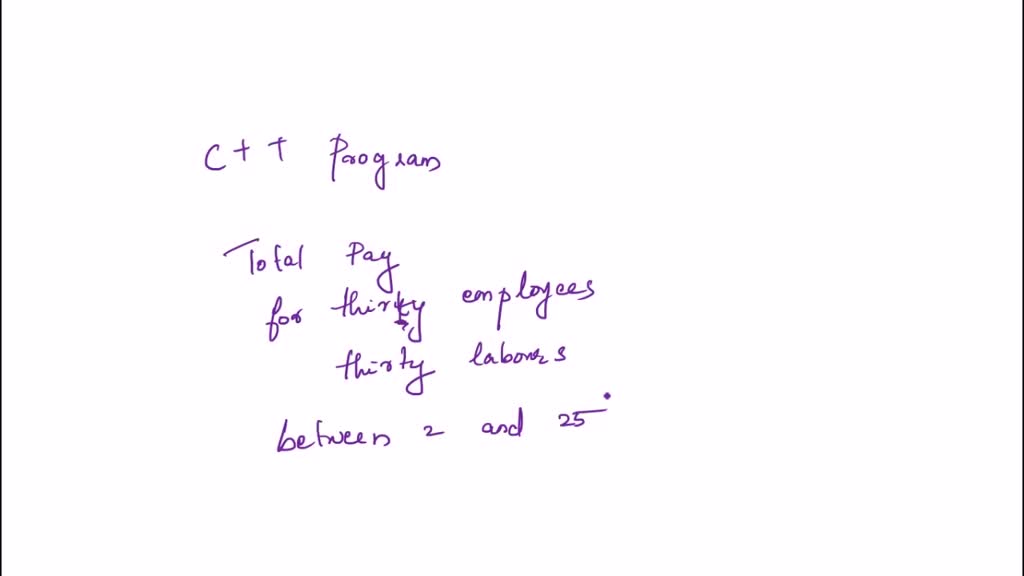 C++ Program
Total Pay
for thirty employees
thirty labours
between 2 and 25